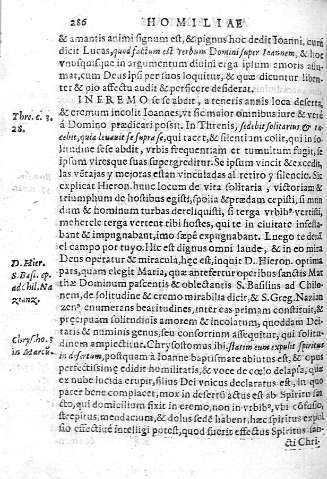 286 HOMILIAE
& amantis animi signum est, & pignus hoc dedit Ioanni, cum
dicit Lucas, quod factum est verbum Domini super Ioannem, & hoc
vnusquisque in argumentum diuini erga ipsum amoris assu-
mat, cum Deus ipsi per suos loquitur, & quæ dicuntur liben-
ter & pio affectu audit & perficere desiderat.
IN EREMO se se abdit, a teneris annis loca deserta,
& eremum incolit Ioannes, vt sic maior omnibus iure & ve-
Thre. c. 3.
28.
a Domino prædicari possit. In Threnis, sedebit solitarius & ta-
cebit, quia leuauit se supra se, qui tacet, & silenti im colit, qui in so-
litudine sese abdit, vrbis frequentiam et tumultum fugit, se
ipsum viresque suas supergreditur. Se ipsum vincit & excedit,
las vẽtajas y mejoras estan vinculadas al retiro y silencio. Sic
explicat Hieron. hunc locum de vita solitaria, victoriam &
triumphum de hostibus egisti, spolia & prædam cepisti, si mun
dum & hominum turbas dereliquisti, si terga vrbibꝰ vertisti,
mehercle terga vertent tibi hostes, qui te in ciuitate infesta-
bant & impugnabant, imo sæpè expugnabant. Luego te dexã
el campo por tuyo. Hic est dignus omni laude, & in eo mira
D. Hier.
S. Bas. ep.
ad Chil. Na
zianz.
Deus operatur & miracula, hęc est, inquit D. Hieron. optima
pars, quam elegit Maria, quæ antefertur operibus sanctis Mat
thæ Dominum pascentis & oblectantis S. Basilius ad Chilo-
nem, de solitudine & eremo mirabilia dicit, & S. Greg. Nazian
zenꝰ enumerans beatitudines, inter eas primam constituit, &
præcipuam solitudinis amorem & incolatum, quoddam Dei-
tatis & numinis genus seu consortium assequitur, qui solitu-
Chrys. ho. 5
in Marcũ.
dinem amplectitur. Chrysostomus ibi, statim eum expulit spiritus
in desertum, postquam à Ioanne baptismate abiutus est, & opus
perfectissimę edidit humilitatis, & voce de cœlo delapsa, quæ
ex nube lucida erupit, filius Dei vnicus declaratus est, in quo
pater bene complacet, mox in desertũ actus est ab Spiritu san-
cto, qui domicilium fixit in eremo, non in vrbibꝰ, vbi cõfusio,
strepitus, mendacium, & dolus sedẽ habent, hæc spiritus expul
sio effectiuè intelligi potest, quod fuerit effectus Spiritus san-
cti Chri-